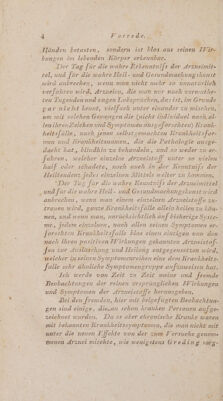 4 Vorrede.
Händen betasten, sondern ist blos aus seinen Wir-
kungen im lebenden Körper erkennbar.
Der Tag für die wahre Kenntniß der Arzneimit-
tel, und für die wahre Heil- und Gesundmachungskunst
wird anbrechen, wenn man aufhören wird, so un-
natürlich zu verfahren, Arzneien, die man nur nach vermuthe-
ten Tugenden und vagen Lobsprüchen, das ist, im Grunde
gar nicht kennt, vielfach unter einander zu mischen
und mit solchen Gemengen die (nicht individuel, nach al-
len ihren Zeichen und Symptomen ausgeforschten) Krank-
heitsfälle, nach jenen selbst gemachten Krankheitsfor-
men und Krankheitsnamen, die die Pathologie ausge-
dacht hat, blindhin zu behandeln, und so weder zu er-
fahren, welcher einzelne Arzneistoff unter so vielen
half oder schadete, noch auch in der Kenntniß der
Heiltendenz jedes einzelnen Mittels weiter zu kommen.
Der Tag für die wahre Kenntniß der Arzneimittel
und für die wahre Heil- und Gesundmachungskunst wird
anbrechen, wenn man einem einzelnen Arzneistoffe zu-
trauen wird, ganze Krankheitsfälle allein heilen zu kön-
nen, und wenn man, unrücksichtlich auf bisherige Syste-
me, jedem einzelnen, nach allen seinen Symptomen er-
forschten Krankheitsfalle blos einen einzigen von den
nach ihren positiven Wirkungen gekannten Arzneistof-
fen zur Auslöschung und Heilung entgegensetzen wird,
welcher in seinen Symptomenreihen eine dem Krankheits-
falle sehr ähnliche Symptomengruppe aufzuweisen hat.
Ich werde von Zeit zu Zeit meine und fremde
Beobachtungen der reinen ursprünglichen Wirkungen
und Symptomen der Arzneistoffe herausgeben.
Bei den fremden, hier mit beigefügten Beobachtun-
gen sind einige, die an schon kranken Personen aufge-
zeichnet wurden. Da es aber chronische Kranke waren
mit bekannten Krankheitssymptomen, die man nicht mit
unter die neuen Effekte von der zum Versuche genom-
menen Arznei mischte, wie wenigstens Greding sorg-